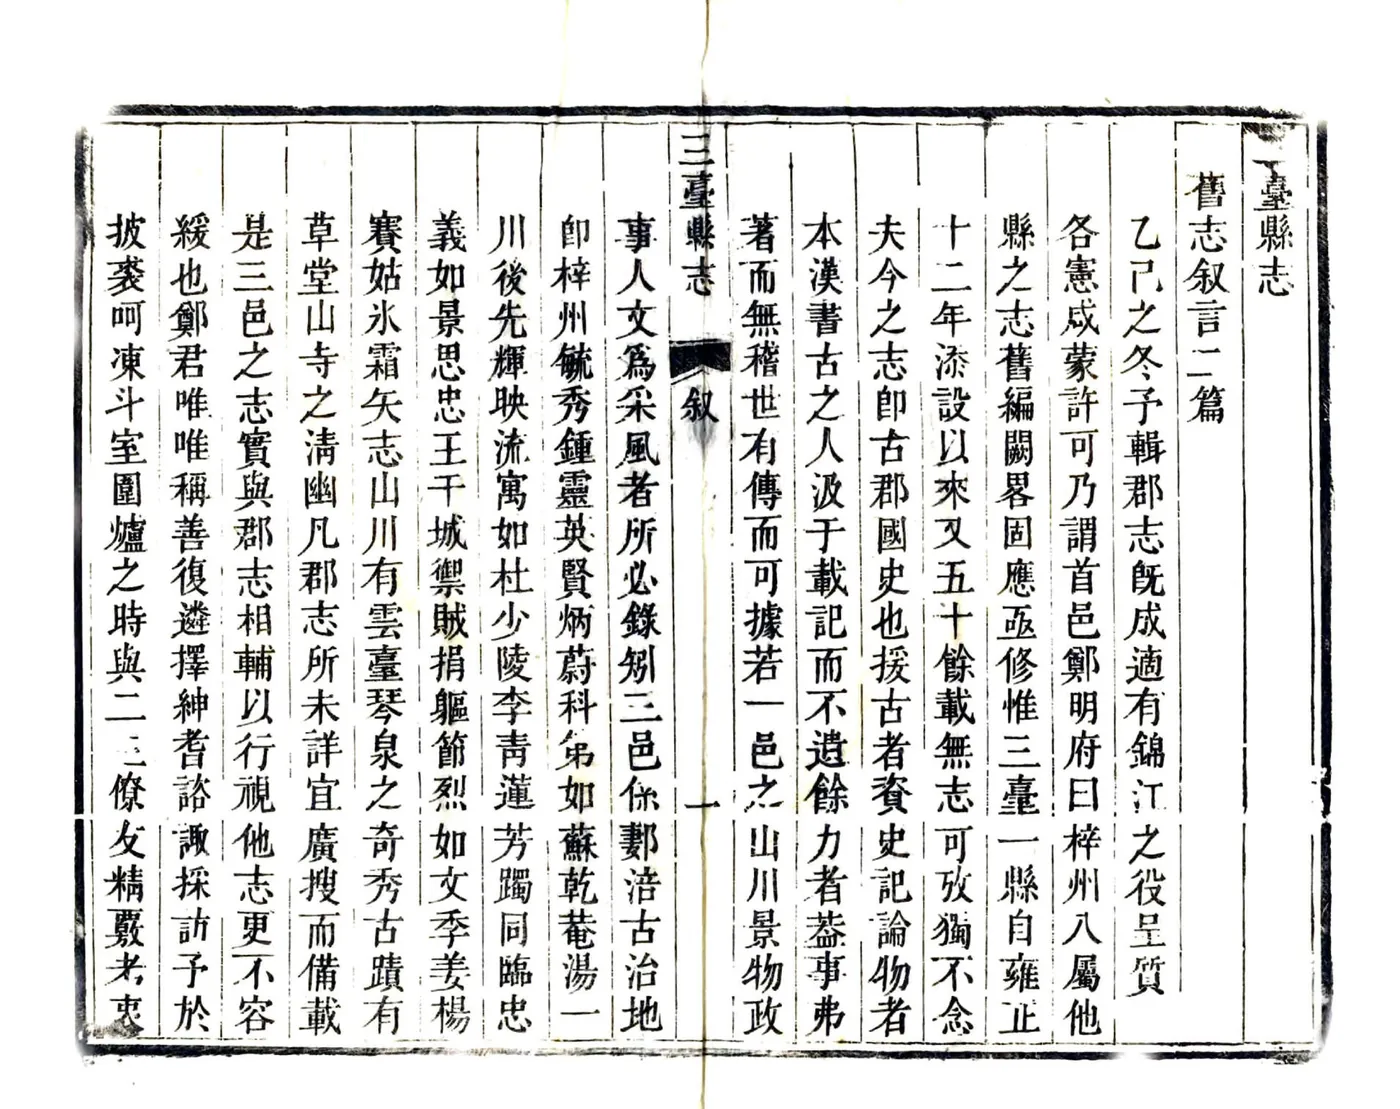 三臺縣志
舊志叙言二篇
乙己之冬予輯郡志既成適有錦江之役呈質
各憲咸蒙許可乃謂首邑鄭明府曰梓州八屬他
縣之志舊編闕畧固應亟修惟三臺一縣自雍正
十二年添設以來又五十餘載無志可攷獨不念
夫今之志卽古郡國史也援古者資史記論物者
本漢書古之人汲于載記而不遺餘力者葢事弗
著而無稽世有傳而可據若一邑之山川景物政
三臺縣志
叙
一
事人文爲采風者所必錄矧三邑係郪涪古治地
卽梓州毓秀鍾靈英賢炳蔚科第如蘇乾菴湯一
川後先輝映流寓如杜少陵李靑蓮芳躅同臨忠
義如景思忠王干城禦賊捐軀節烈如文季姜楊
賽姑氷霜矢志山川有雲臺琴泉之奇秀古蹟有
草堂山寺之淸幽凡郡志所未詳宜廣搜而備載
是三邑之志實與郡志相輔以行視他志更不容
緩也鄭君唯唯稱善復遴擇紳耆諮諏採訪予於
披裘呵凍斗室圍爐之時與二三僚友精覈考衷